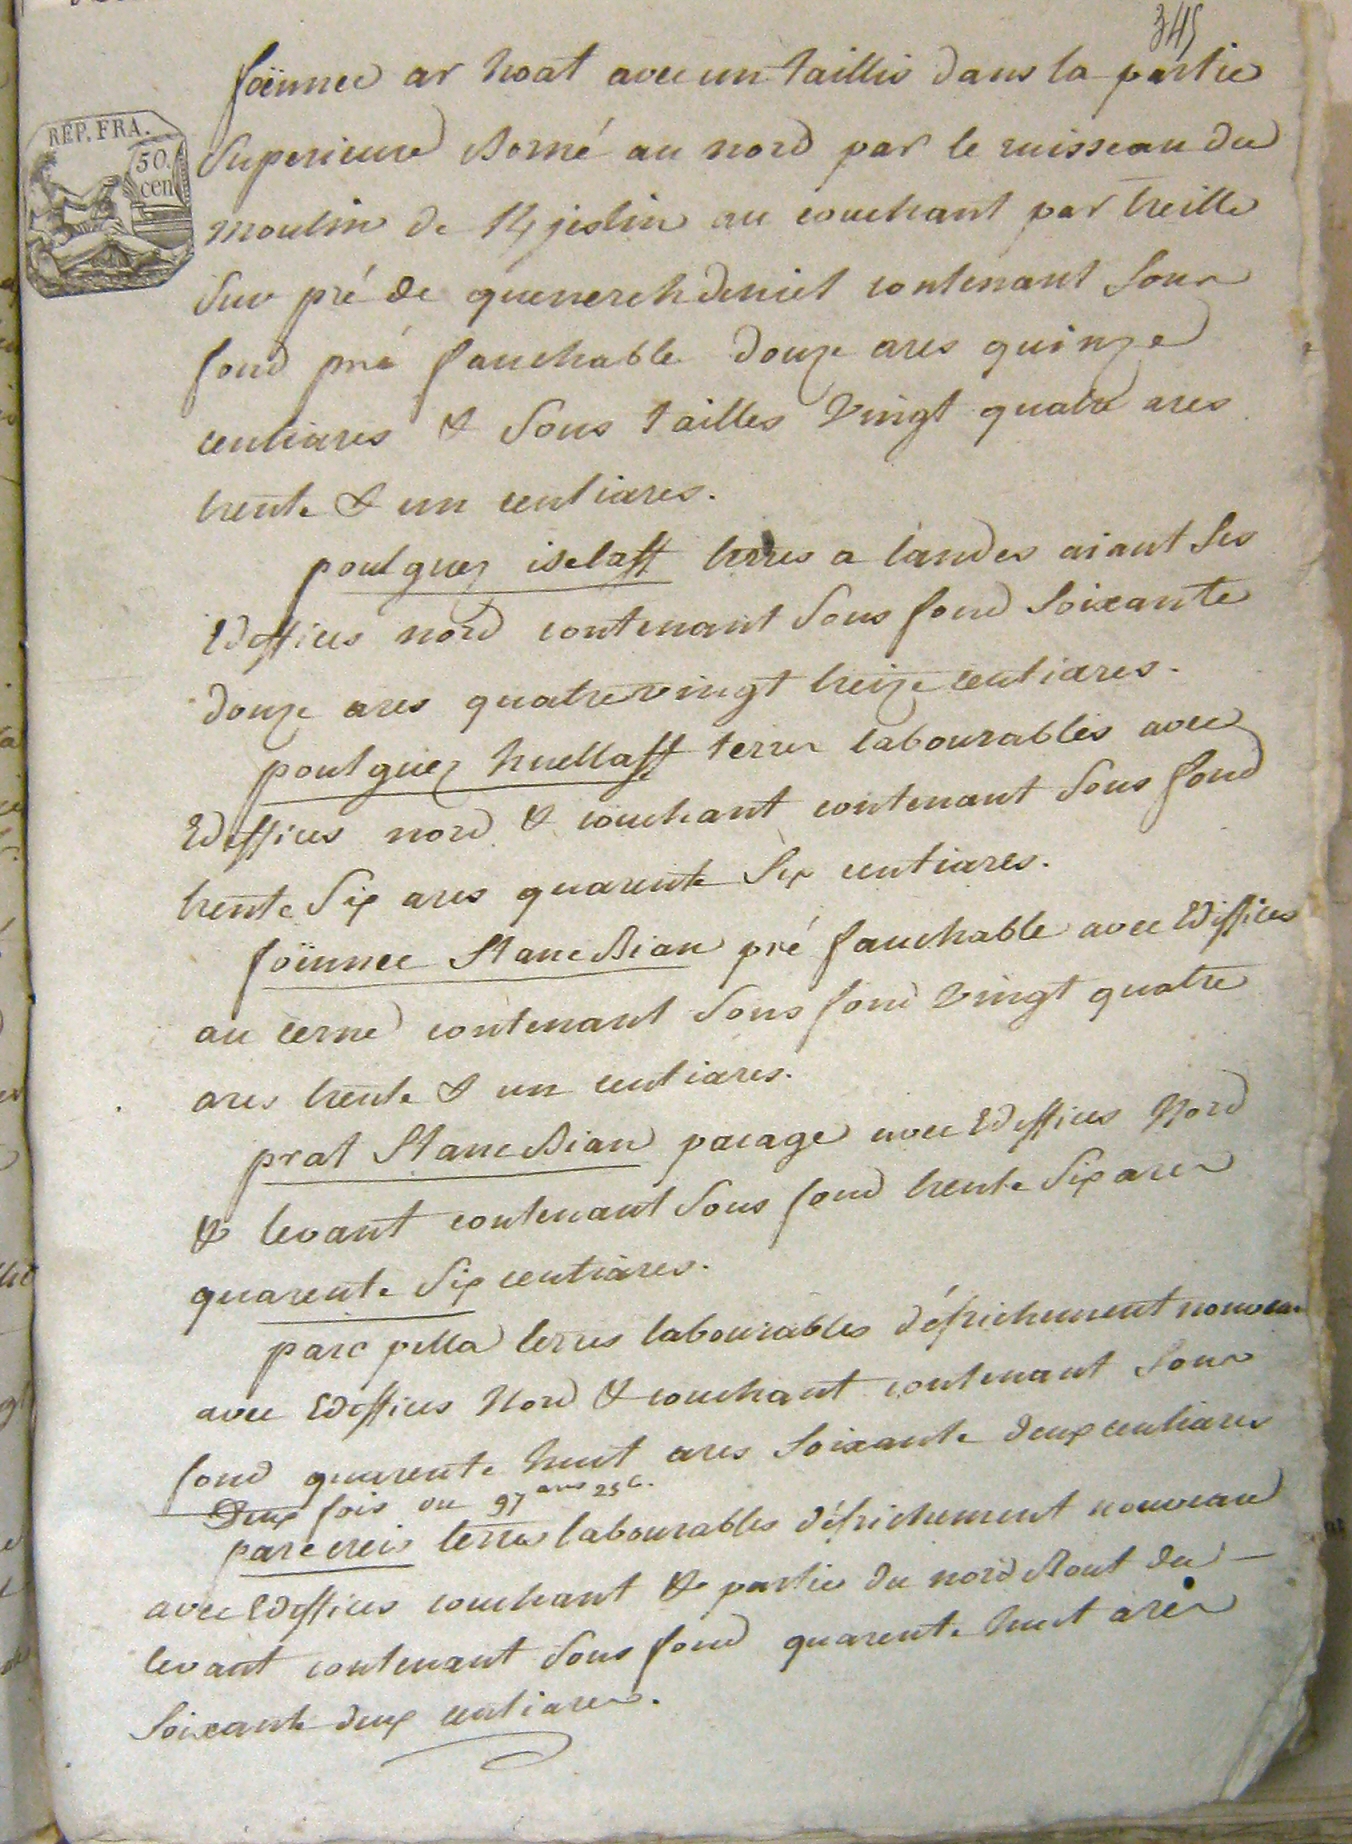 345
foënnec ar hoat avec un taillis dans la partie
REP. FRA.
50.
cen
Superieure Borné au nord par le ruisseau du
moulin de Kjeslin au couchant par treille
Sur pré de quenerch Deniel contenant Sous
fond pré fauchable Douze ares quinze
centiares & Sous tailles Vingt quatre ares
trente & un centiares.
poulguez iselaff terres a landes aiant Ses
Edeffices nord contenant Sous fond Soixante
douze ares quatre vingt treize centiares.
poulguez huellaff terres labourables avec
Edeffices nord & couchant contenant Sous fond
trente Six ares quarente Six centiares.
foënnec Stanc Bian pré fauchable avec Ediffices
au cerne contenant Sous fond Vingt quatre
ares trente & un centiares.
prat Stanc Bian pacage avec Edeffices Nord
& levant contenant Sous fond trente Six ares
quarente Six centiares.
parc pella terres labourables défrichement nouveau
avec Edeffices Nord & couchant contenant Sous
fond quarente huit ares Soixante deux centiares
Deux fois ou 97 ares 25 c.
parc creis terres labourables défrichement nouveau
avec Edeffices couchant & partie du nord Bout du
levant contenant Sous fond quarente huit ares
Soixante deux centiares.